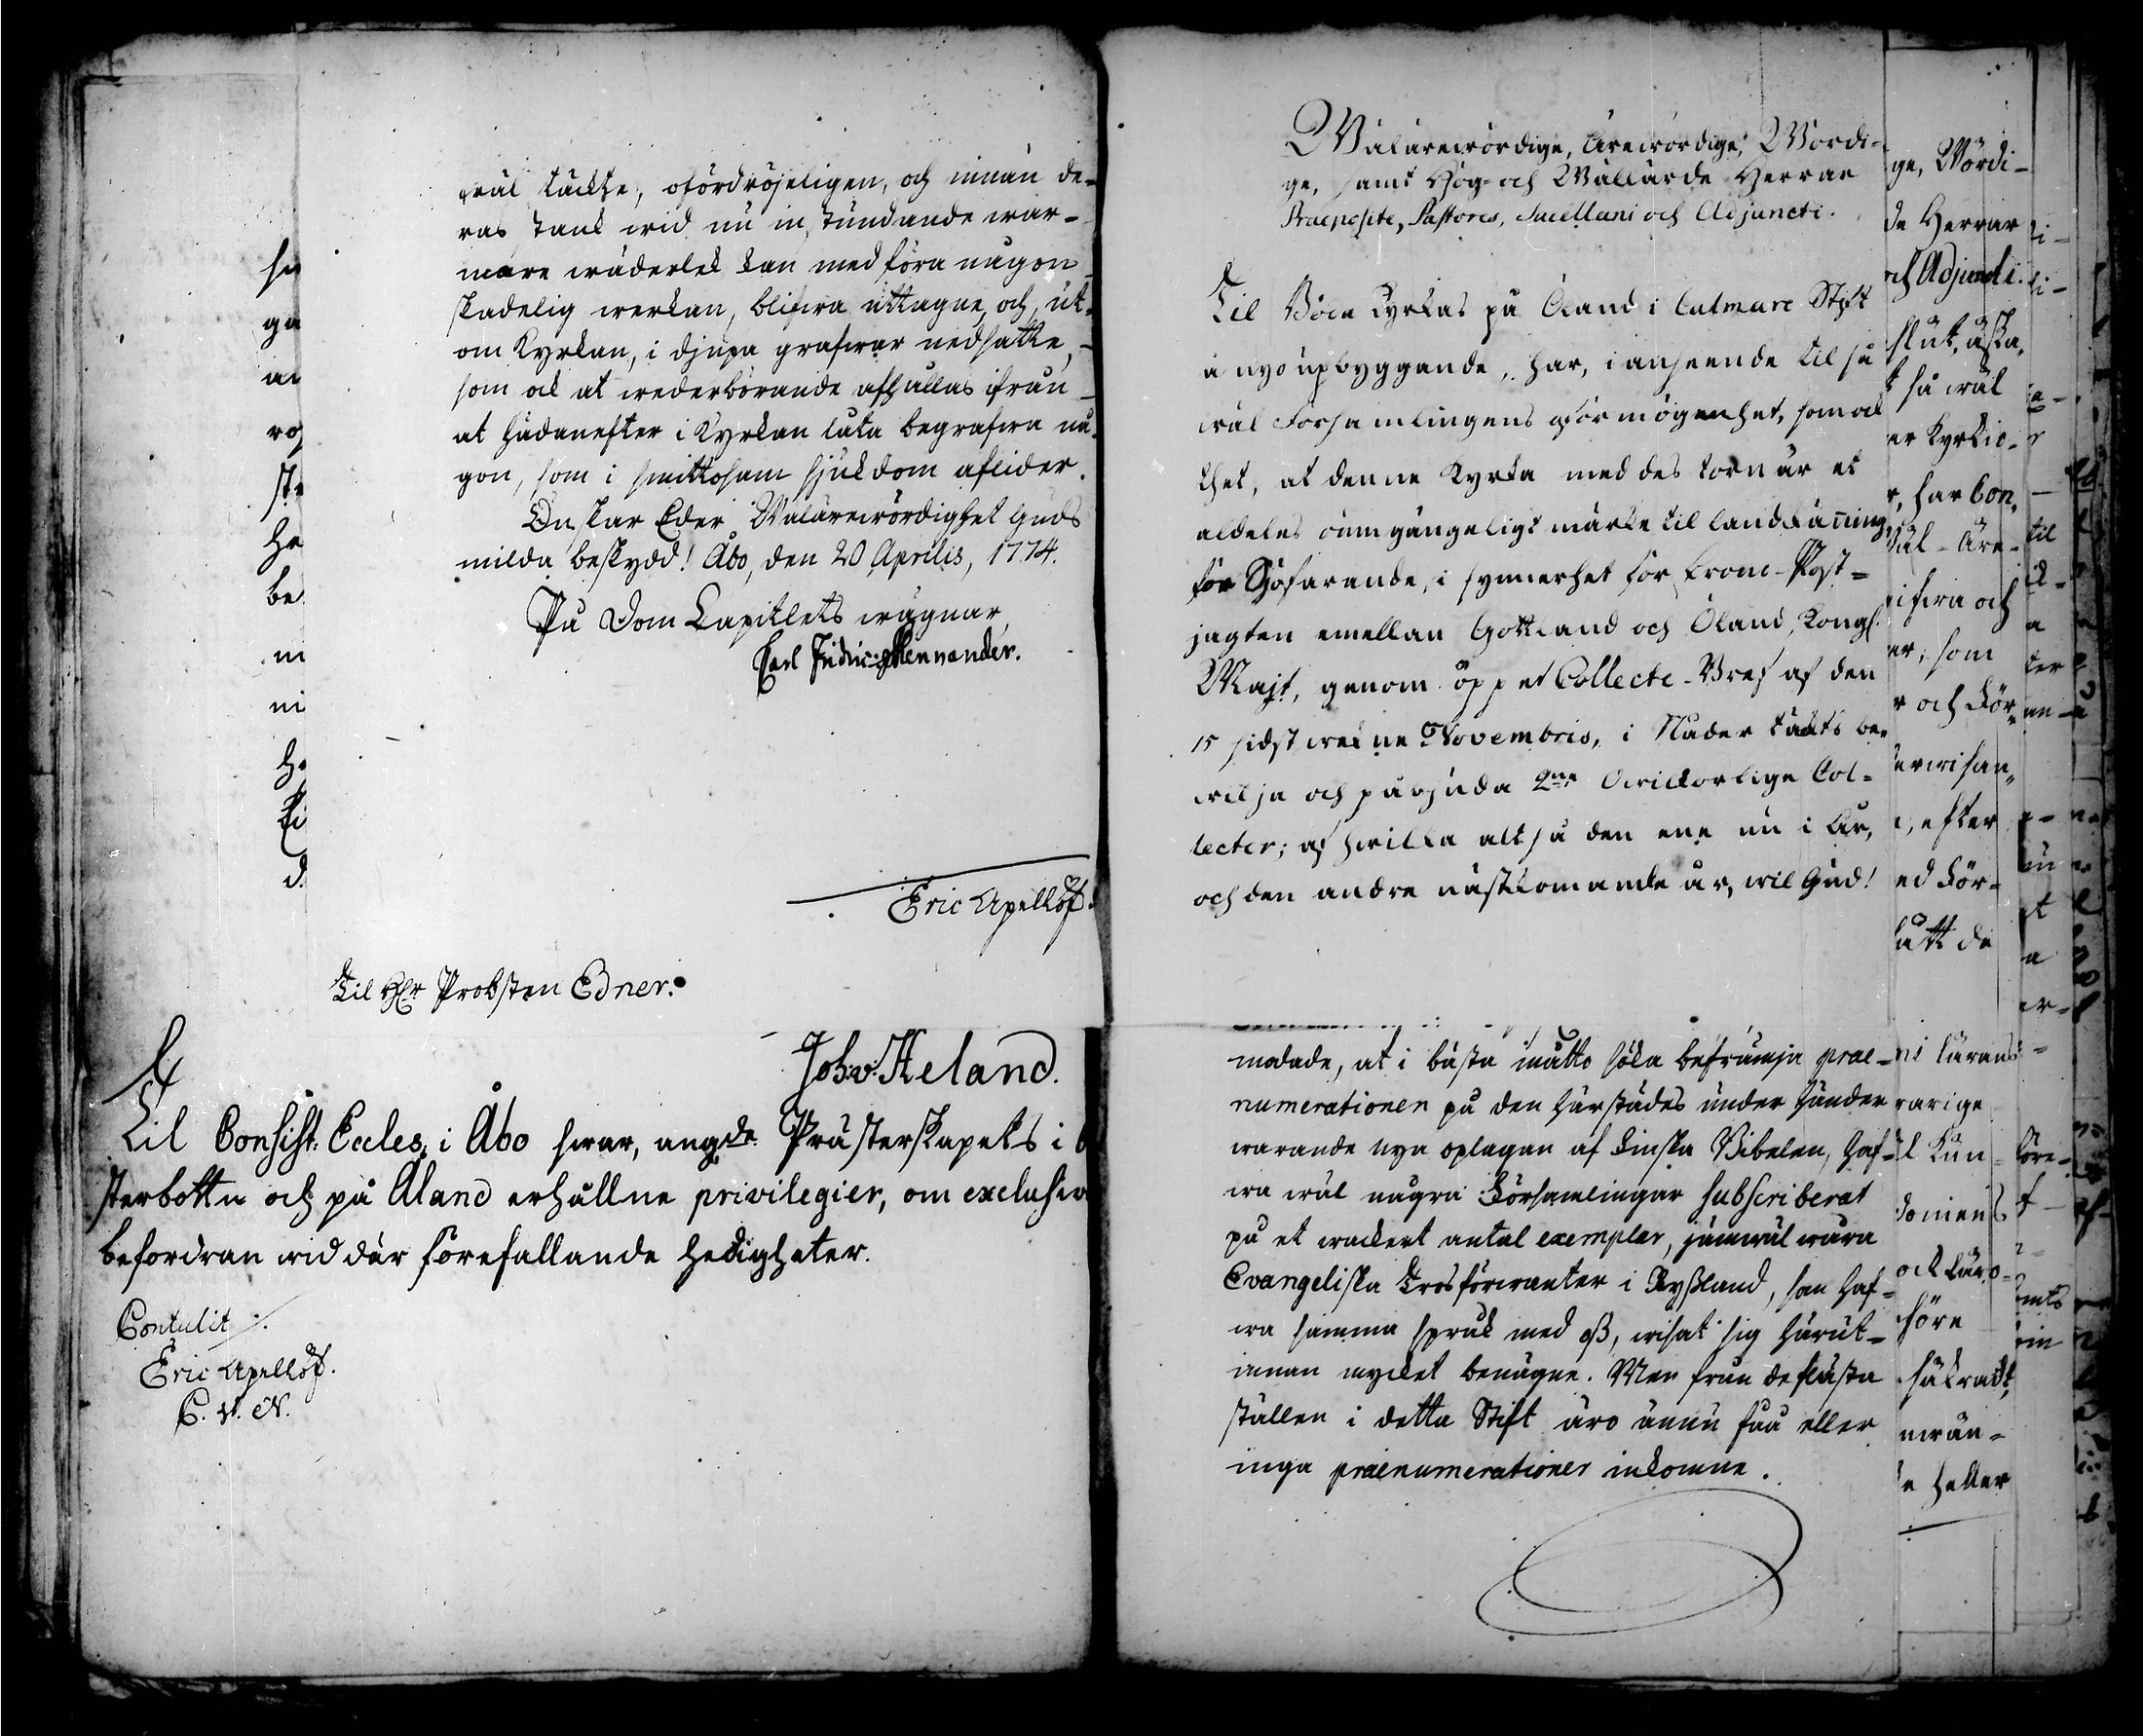 wäl täckte, ofördröjeligen, och innan de-
ras stank wid nu in stundande war-
mare wäderlek kan medföra någon
skadelig werkan, blifwa uttagne, och, ut-
om Kyrkan, i djupa grafwar nedsatte,
som ock at wederbörande afhållas ifrån
at hädanefter i Kyrkan låta begrafwa nå-
gon, som i smittosam sjukdom aflider.
Önskar Eder Wälärewördighet Guds
milda beskydd! Åbo, den 20 Aprilis, 1774.
På Dom Capitlets wägnar,
Carl Fridric Mennander.
Eric Apellöf.
Til Hr Probsten Edner.
Joh: v: Heland.
Til Consist. Eccles. i Åbo swar, angde Prästerskapets i
sterbottn och på Åland erhållne privilegier, om exclusiw
befordran wid där förefallande ledigheter.
Contulit
Eric Apellöf.
C. V. N.
Wälärewördige, Ärewördige, Wördi-
ge, samt Hög- och Wällärde Herrar
Praepositi, Pastores, Sacellani och Adjuncti.
Til Böda Kyrkas på Öland i Calmare Stift
å nyo upbyggande, har, i anseende til så
wäl Församlingens oförmögenhet, som ock
thet, at denne Kyrka med des torn är et
aldeles oumgängeligt märke til landkänning
för Sjöfarande, i synnerhet för Krono-Post-
jagten emellan Gottland och Öland, Kongl.
Majt, genom öppet Collecte-Bref af den
15 sidstwekne Novembris, i Nåder täckts be-
wilja och påbjuda 2ne Owilkorlige Col-
lecter; af hwilka altså den ene nu i år,
och den andre nästkomande år, wil Gud!
modade, at i bästa måtto söka befrämja prae-
numerationen på den härstädes under händer
warande nya oplagan af Finska Bibelen, haf-
wa wäl några Församlingar subscriberat
på et wackert antal exemplar, jämwäl wåra
Evangeliska Trosförwanter i Ryßland, som haf-
wa samma språk med oß, wisat sig härut-
innan mycket benägne. Men från de flästa
ställen i detta Stift äro ännu fåå eller
inga praenumerationer inkomne.
ge, Wördi-
de Herrar
och Adjuncti.
slut, äska,
så wäl
er Kyrkio-
r, har Con,
Wäl-Äre-
ifwa och
er, som
r och För-
erwisan,
, efter
ed För-
lått de